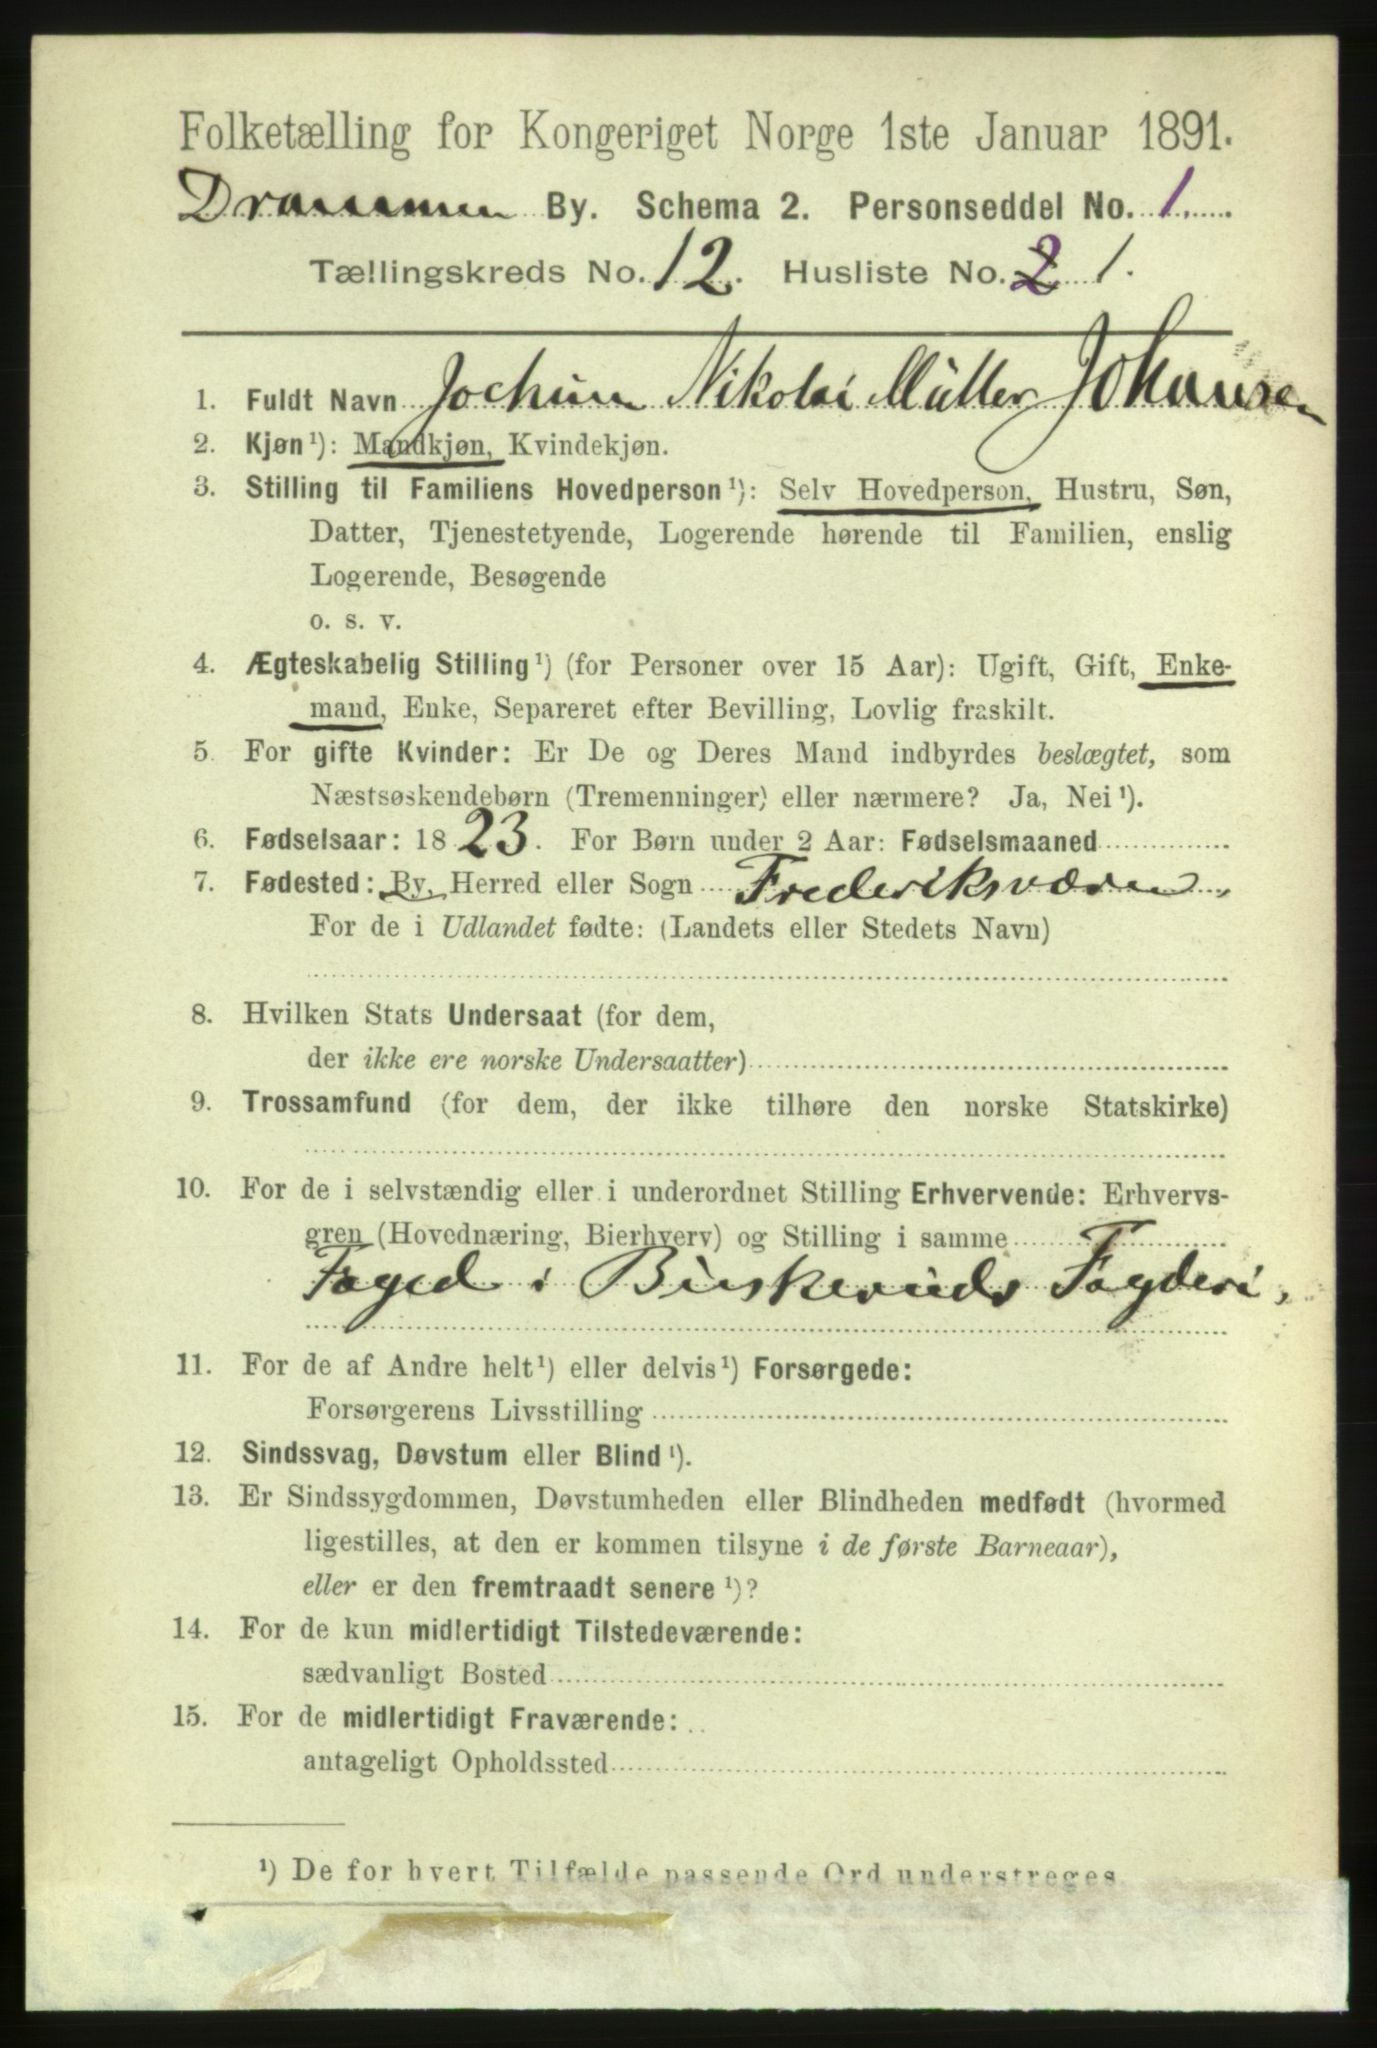 Folketælling for Kongeriget Norge 1ste Januar 1891.
Drammen By. Schema 2. Personseddel No. 1.
Tællingskreds No. 12. Husliste No. 2 1.
1. Fuldt Navn Jochum Nikolai Müller Johansen
2. Kjøn¹): Mandkjøn, Kvindekjøn.
3. Stilling til Familiens Hovedperson¹): Selv Hovedperson, Hustru, Søn,
Datter, Tjenestetyende, Logerende hørende til Familien, enslig
Logerende, Besøgende
o. s. v.
4. Ægteskabelig Stilling¹) (for Personer over 15 Aar): Ugift, Gift, Enke-
mand, Enke, Separeret efter Bevilling, Lovlig fraskilt.
5. For gifte Kvinder: Er De og Deres Mand indbyrdes beslægtet, som
Næstsøskendebørn (Tremenninger) eller nærmere? Ja, Nei¹).
6. Fødselsaar: 1823. For Børn under 2 Aar: Fødselsmaaned
7. Fødested: By, Herred eller Sogn Frederiksværn,
For de i Udlandet fødte: (Landets eller Stedets Navn)
8. Hvilken Stats Undersaat (for dem,
der ikke ere norske Undersaatter)
9. Trossamfund (for dem, der ikke tilhøre den norske Statskirke)
10. For de i selvstændig eller i underordnet Stilling Erhvervende: Erhvervs-
gren (Hovednæring, Bierhverv) og Stilling i samme
Foged i Buskeruds Fogderi,
11. For de af Andre helt¹) eller delvis¹) Forsørgede:
Forsørgerens Livsstilling
12. Sindssvag, Døvstum eller Blind¹).
13. Er Sindssygdommen, Døvstumheden eller Blindheden medfødt (hvormed
ligestilles, at den er kommen tilsyne i de første Barneaar),
eller er den fremtraadt senere¹)?
14. For de kun midlertidigt Tilstedeværende:
sædvanligt Bosted
15. For de midlertidigt Fraværende:
antageligt Opholdssted
¹) De for hvert Tilfælde passende Ord understreges.